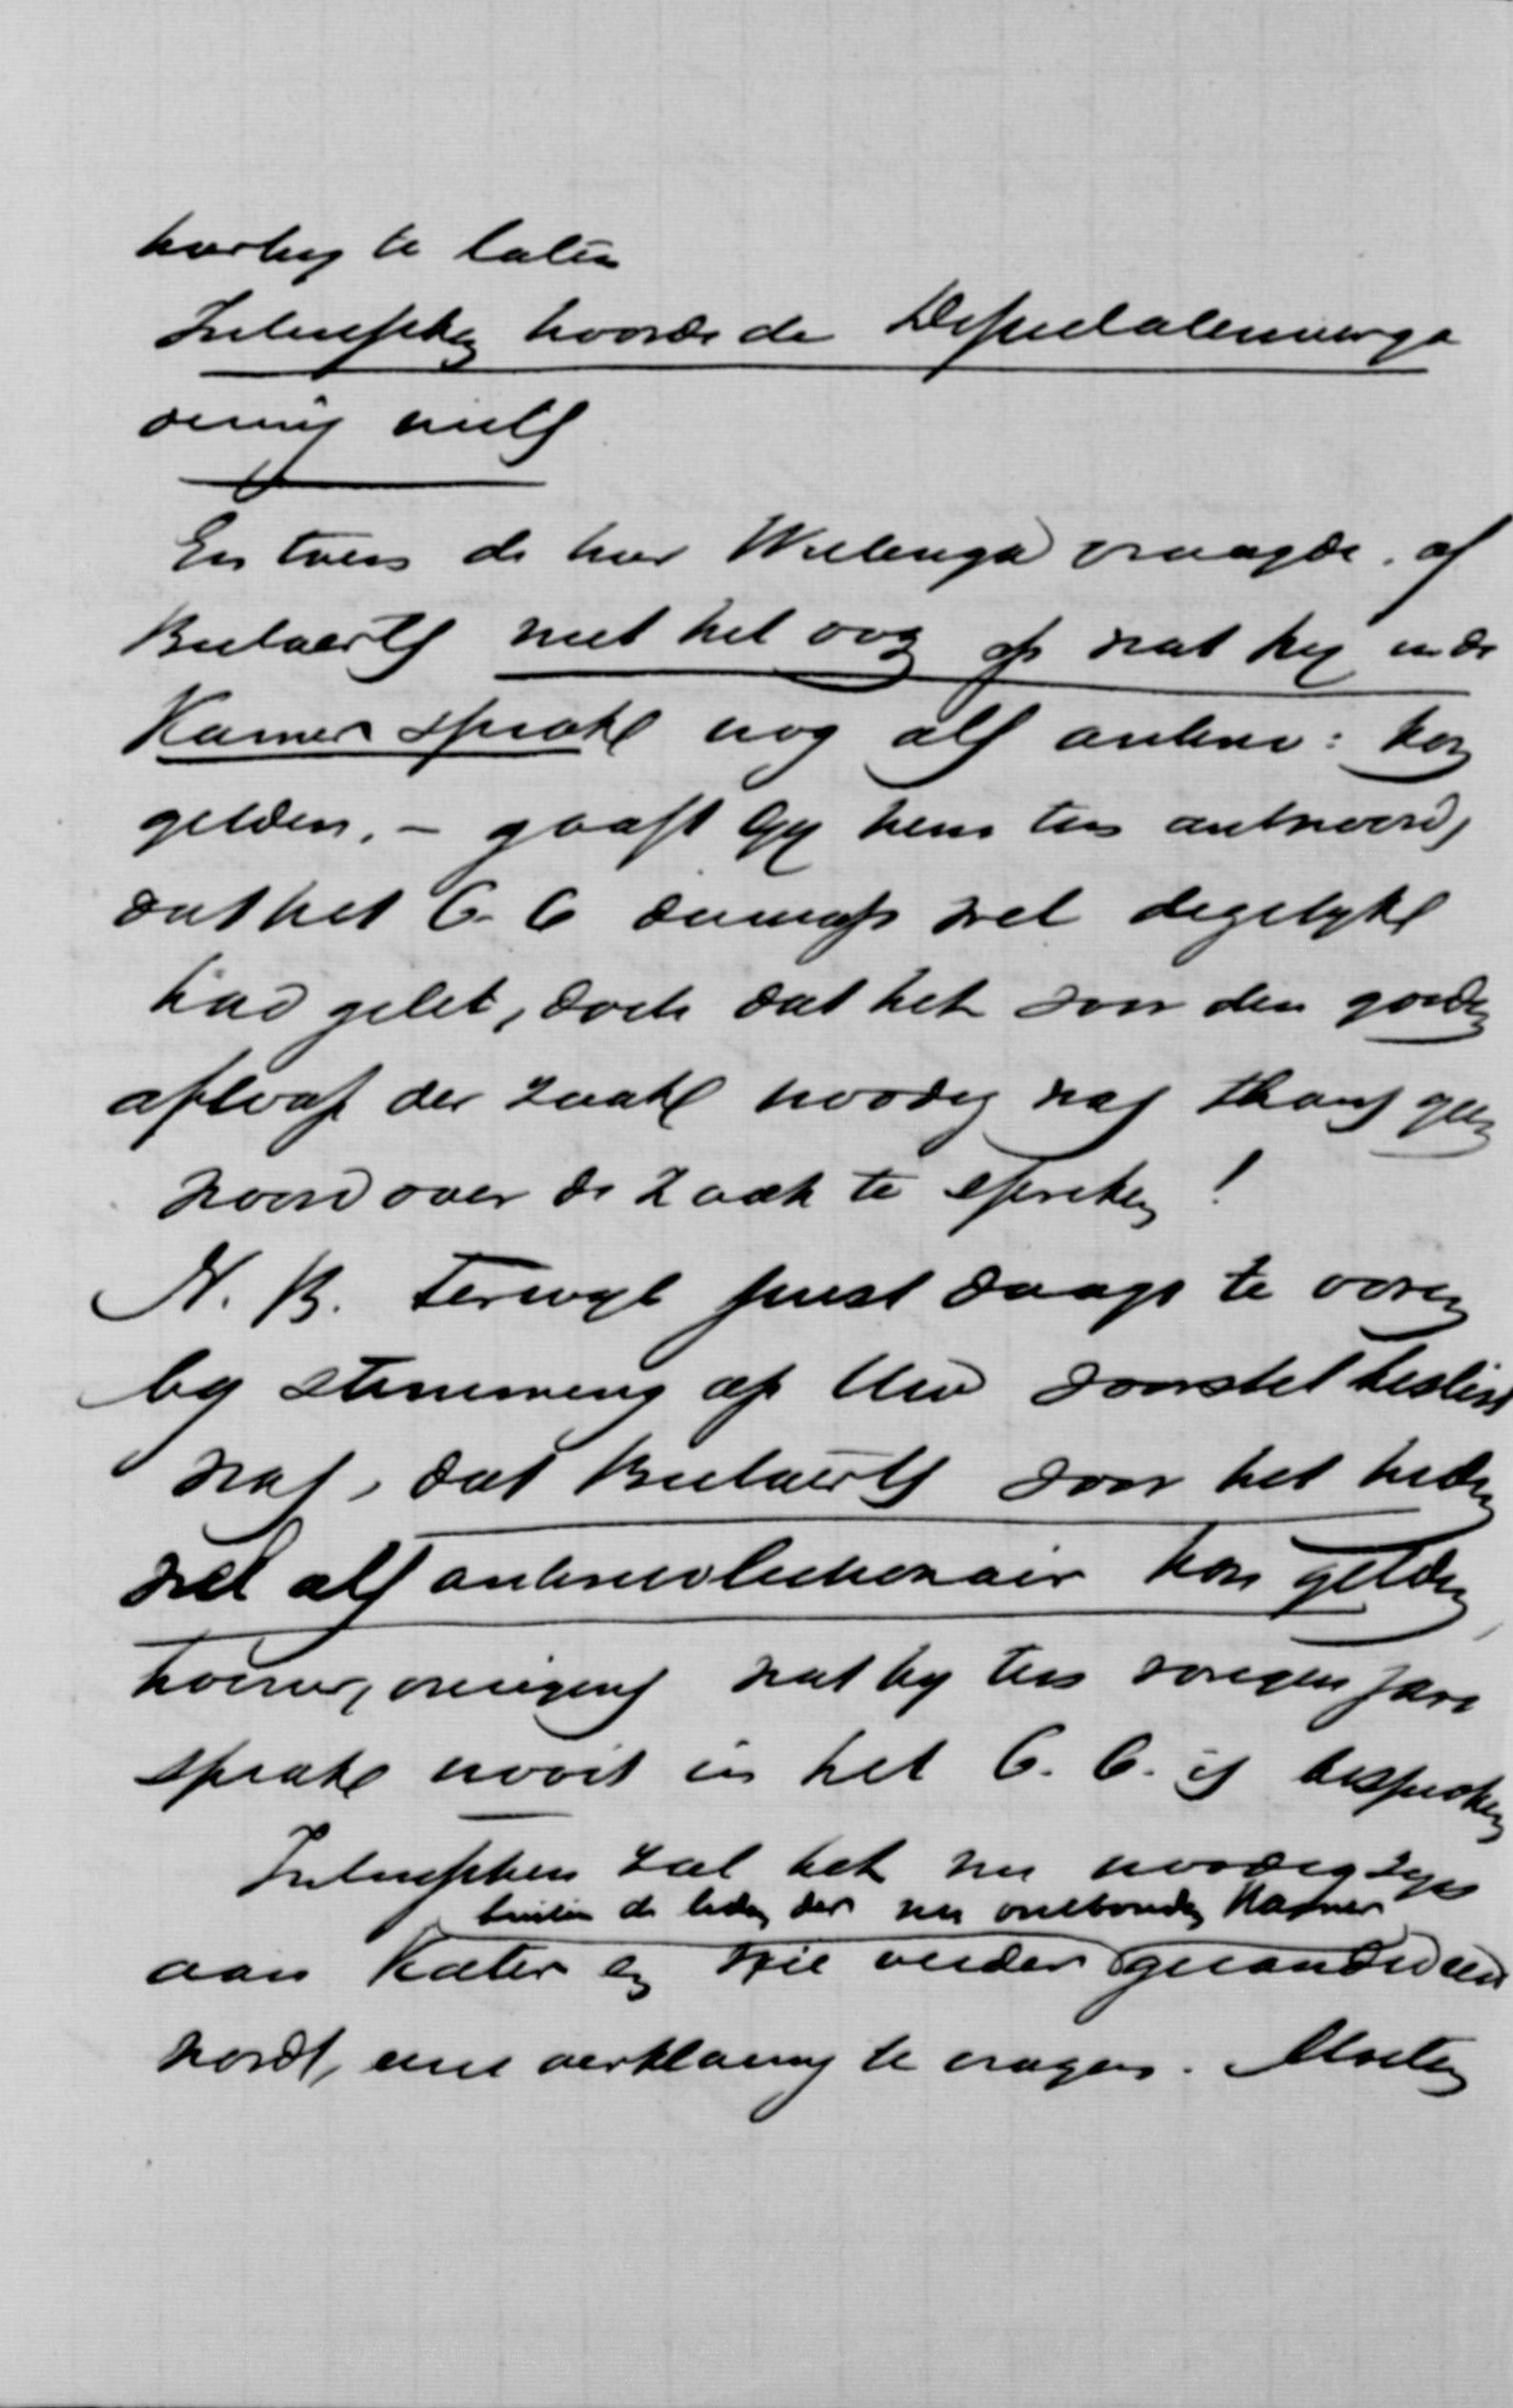 te laten
Intusschen hoorde de Deputatenverga
dering niets
En toen de heer Wielenga vraagde, of
Beelaerts met het oog op wat hij in de
Kamer sprak nog als antirev: kon
gelden, – gaaft Gij hem ten antwoord,
dat het C. C daarop wel degelijk
had gelet, doch dat het voor den goeden
afloop der zaak noodig was thans geen
woord over de zaak te spreken!
N. B. Terwijl juist daags te voren
bij stemming op Uw voorstel beslist
was, dat Beelaerts voor het heden
wel als antirevolutionair kon gelden,
overigens wat hij ten vorigen jare
sprak nooit in het C. C. is besproken
Intusschen zal het nu noodig zijn
buiten de leden der nu ontbonden Kamer
aan Kater en wie verder gecandideerd
wordt, eene verklaring te vragen. Mochten